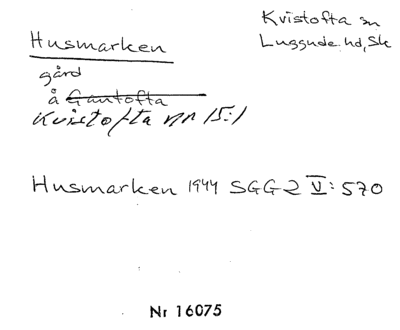 Kvistofta sn
Luggude hd, Sk
Husmarken
gård
å Gantofta
Kvistofta nr 15:1
Husmarken 1944 SGG2 V: 570
Nr 16075